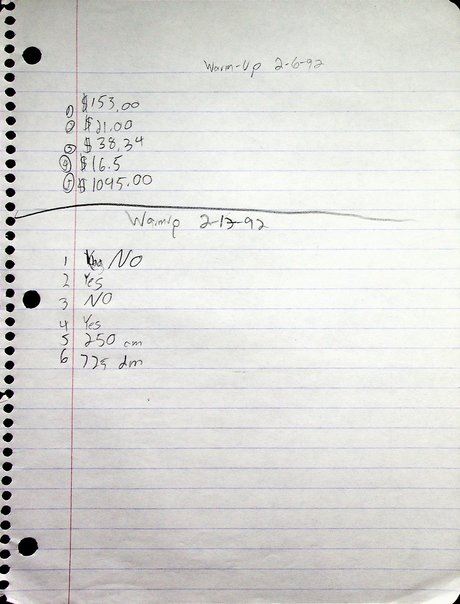 Warm-Up 2-6-92
1 $153.00
2 $21.00
3 $38.34
4 $16.5
5 $1095.00
Warmup 2-13-92
1 NO
2 Yes
3 NO
4 Yes
5 250 cm
6 725 dm